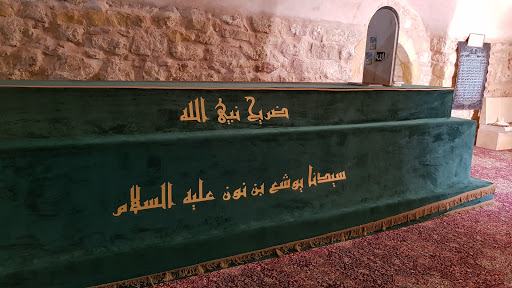 ضريح نبي الله
سيدنا يوشع بن نون عليه السلام